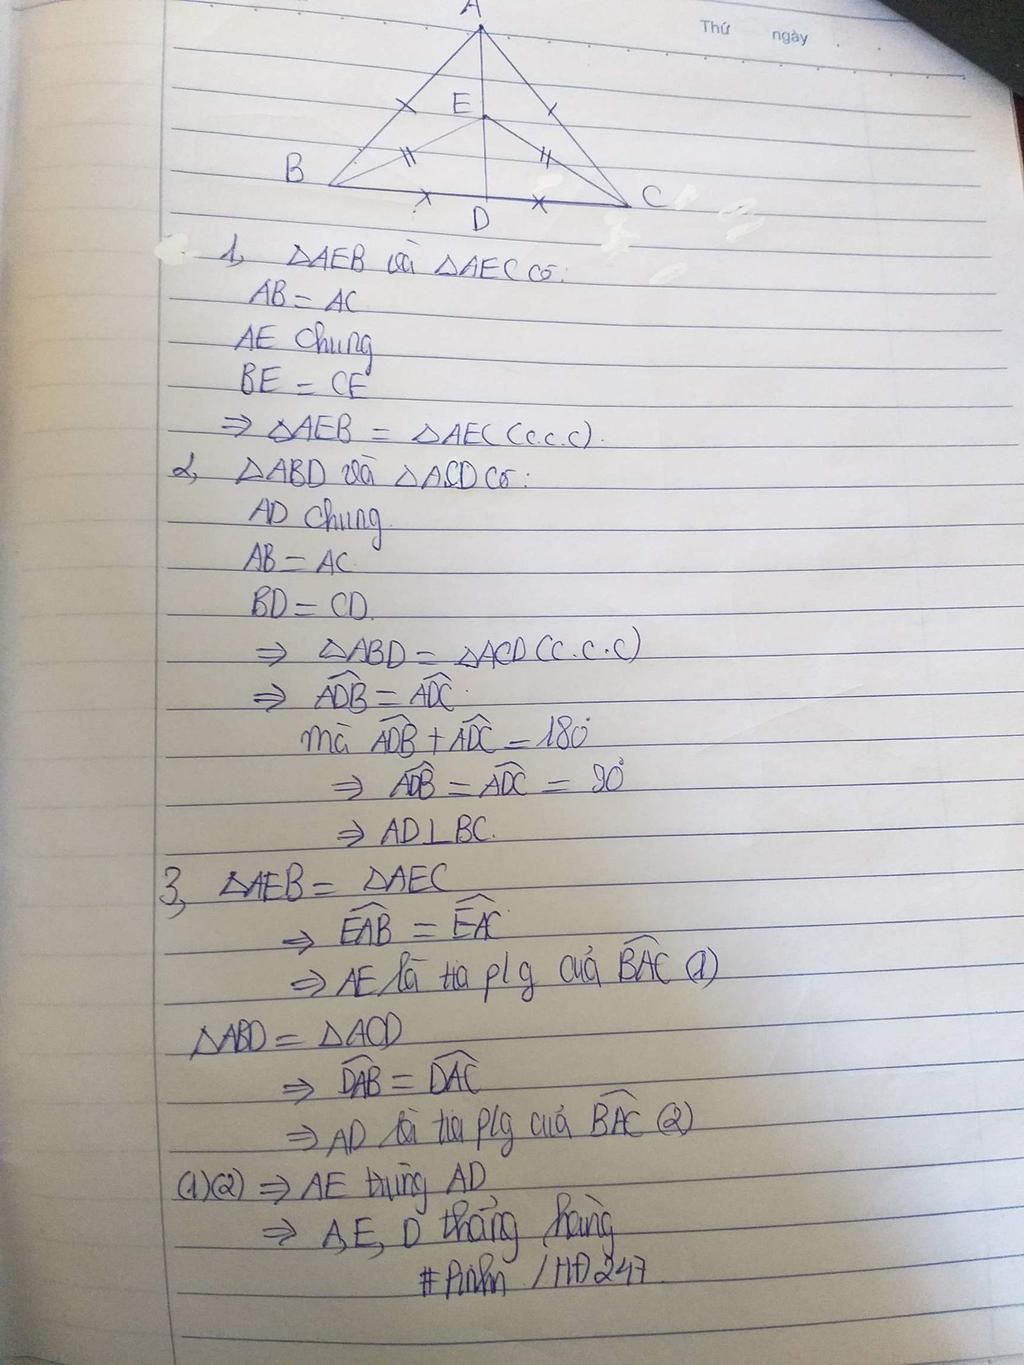 Thứ ngày
A
E
B
C
D
1, △AEB và △AEC có:
AB = AC
AE chung
BE = CE
⇒ △AEB = △AEC (c.c.c).
2, △ABD và △ACD có:
AD chung
AB = AC
BD = CD
⇒ △ABD = △ACD (c.c.c)
⇒ \widehat{ADB} = \widehat{ADC}
mà \widehat{ADB} + \widehat{ADC} = 180°
⇒ \widehat{ADB} = \widehat{ADC} = 90°
⇒ AD ⊥ BC.
3, △AEB = △AEC
⇒ \widehat{EAB} = \widehat{EAC}
⇒ AE là tia p/g của \widehat{BAC} (1)
△ABD = △ACD
⇒ \widehat{DAB} = \widehat{DAC}
⇒ AD là tia p/g của \widehat{BAC} (2)
(1)(2) ⇒ AE trùng AD
⇒ A, E, D thẳng hàng
/HĐ247